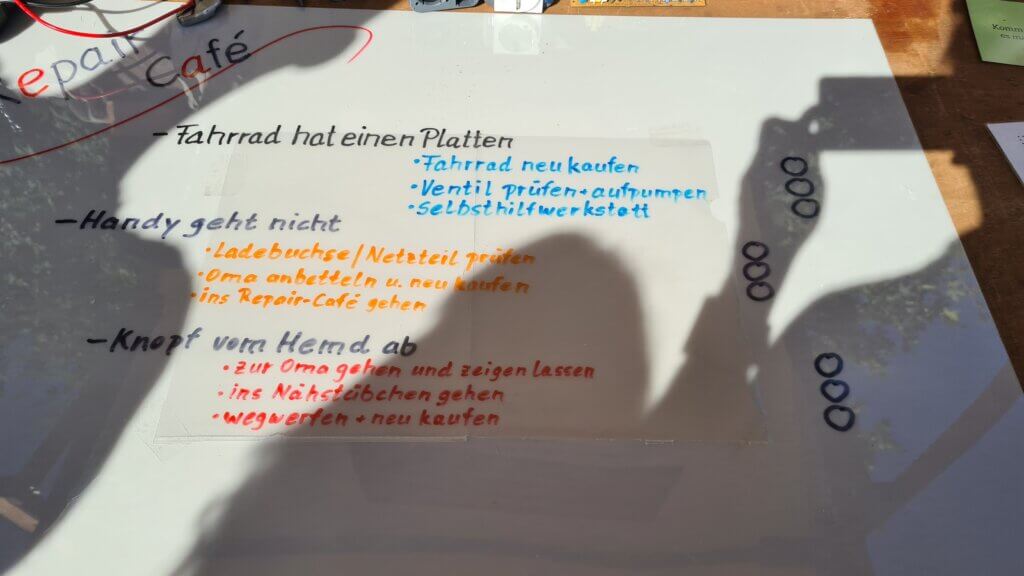 Repair
Café
Komm
- Fahrrad hat einen Platten
• Fahrrad neu kaufen
• Ventil prüfen + aufpumpen
• Selbsthilfwerkstatt
- Handy geht nicht
• Ladebuchse / Netzteil prüfen
• Oma anbetteln u. neu kaufen
• ins Repair-Café gehen
- Knopf vom Hemd ab
• zur Oma gehen und zeigen lassen
• ins Nähstübchen gehen
• wegwerfen + neu kaufen